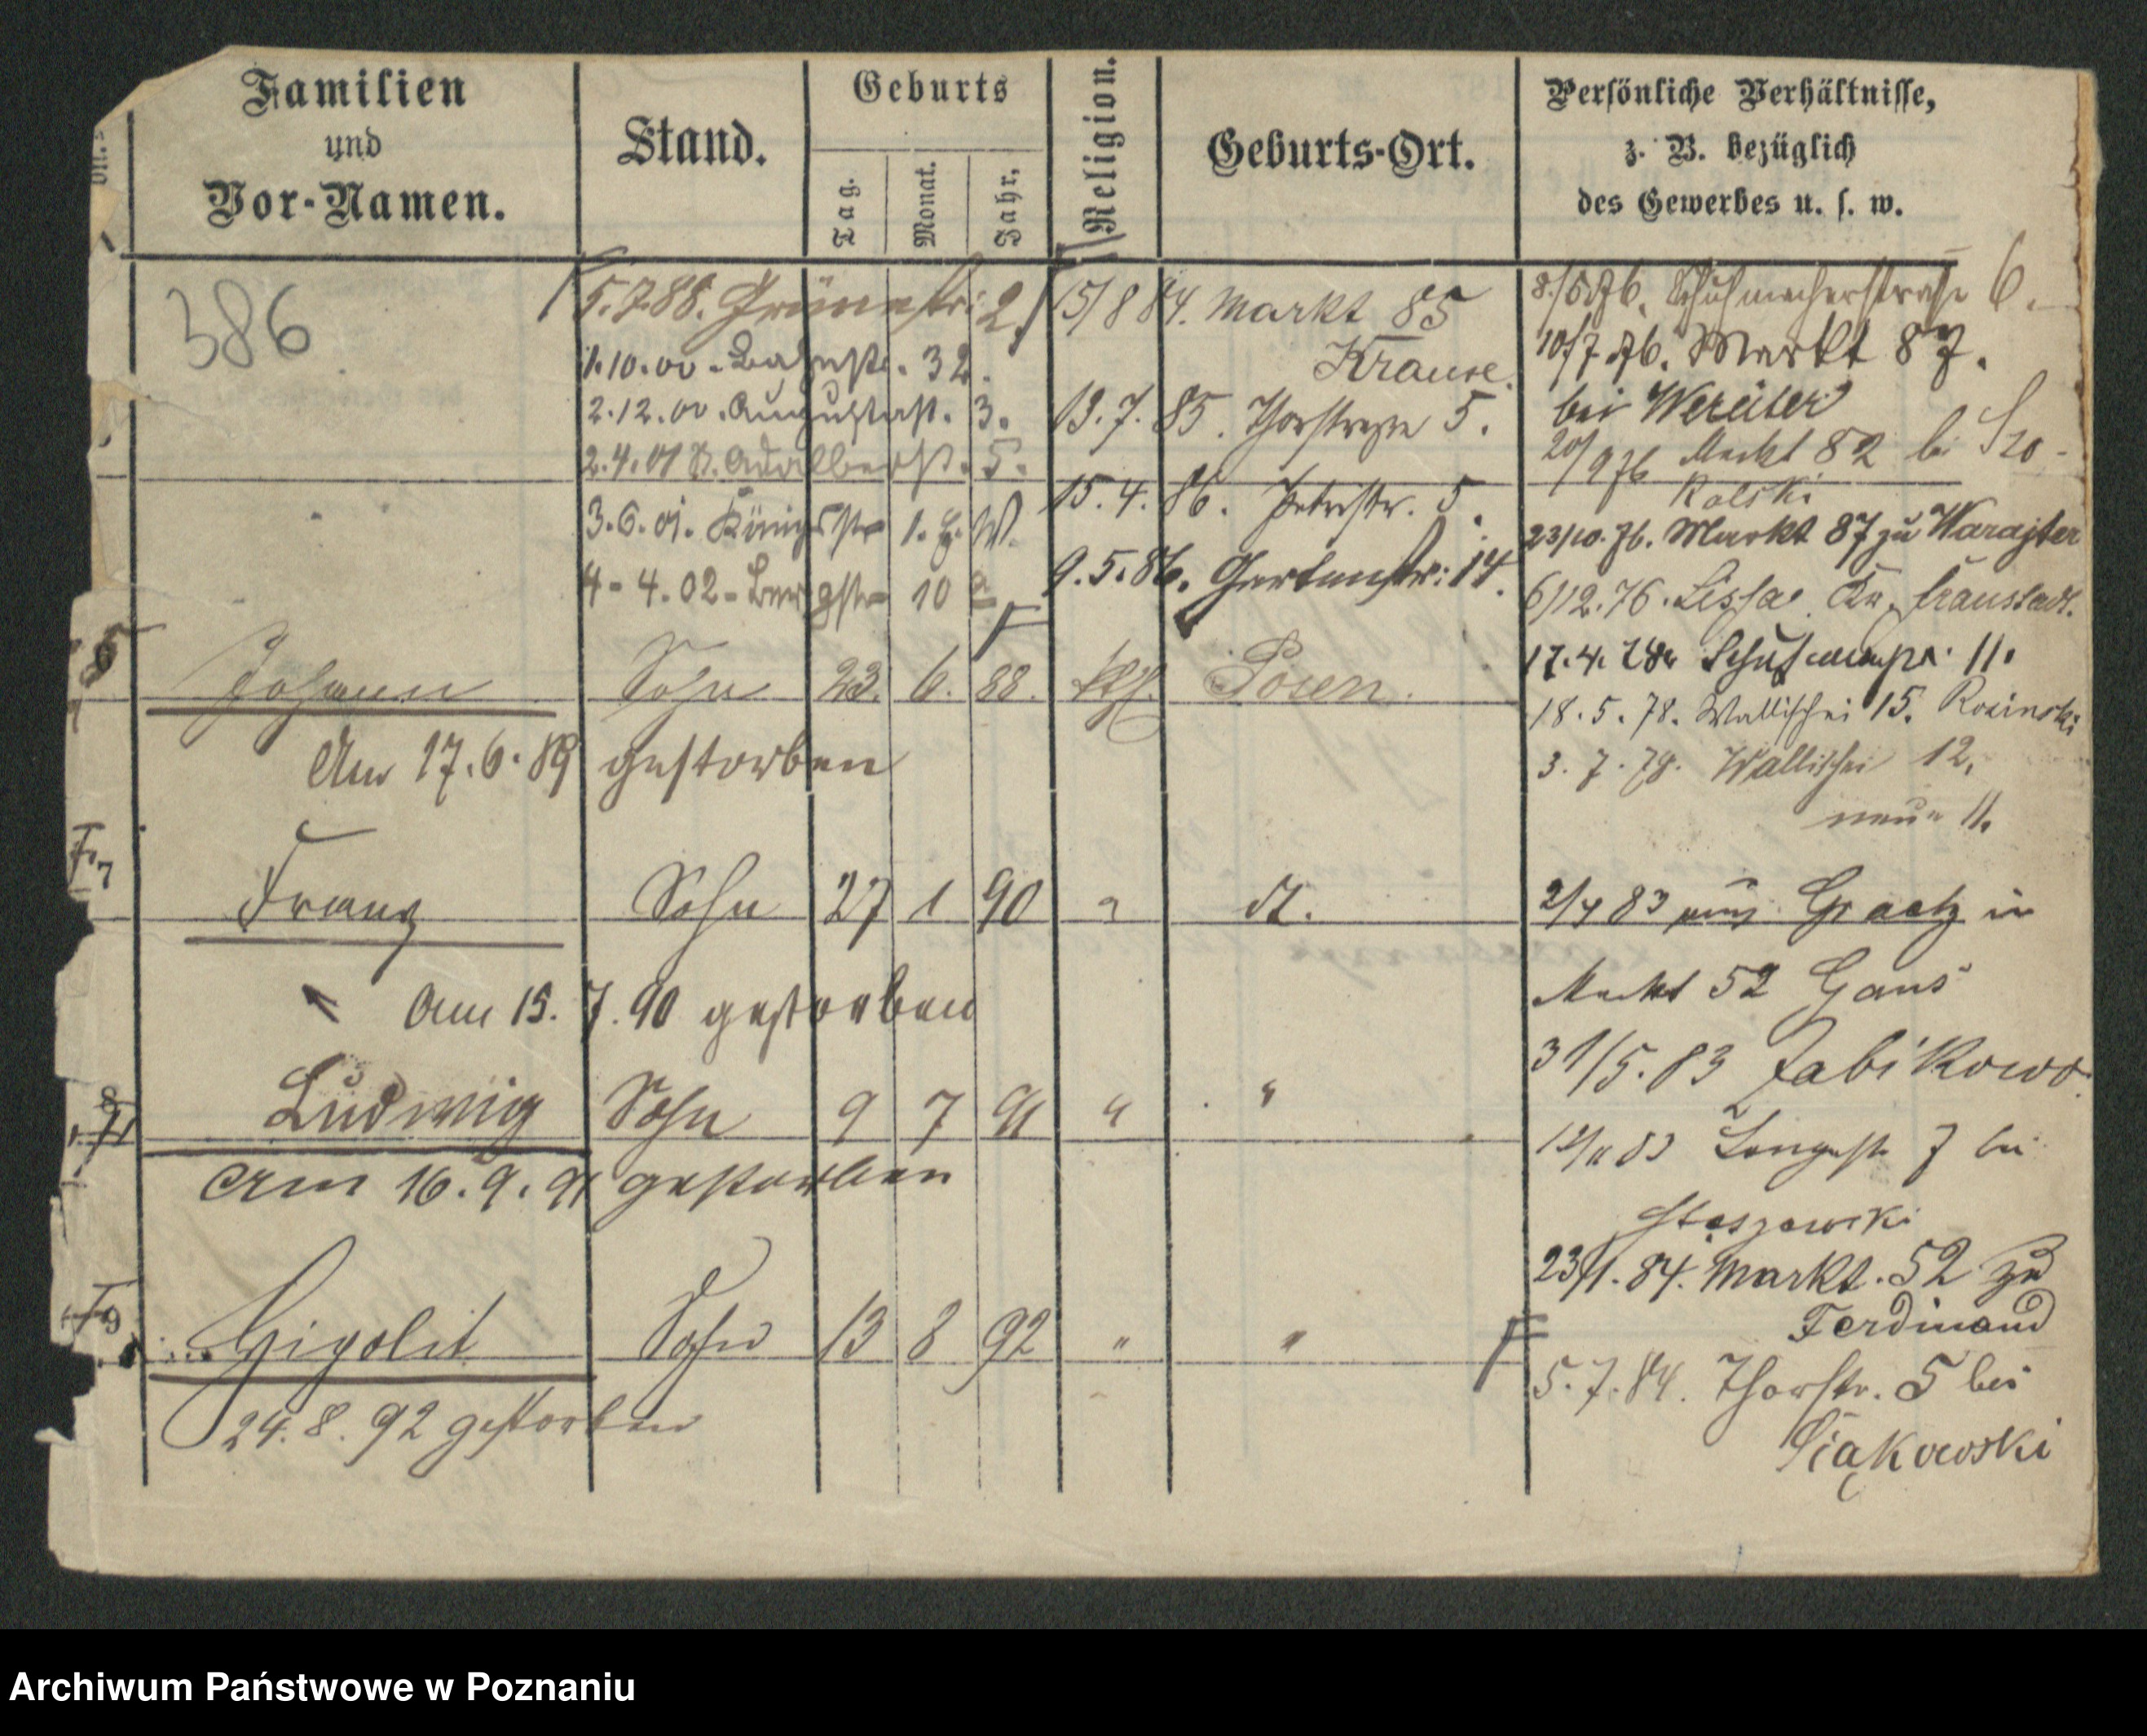 Familien
und
Vor-Namen.
Stand.
Geburts
Tag.
Monat.
Jahr.
Religion.
Geburts-Ort.
Persönliche Verhältnisse,
z. B. bezüglich
des Gewerbes u. s. w.
386
5.7.88. Grünestr: 2.
1.10.00. 32.
2.12.00. Augustast. 3.
2.4.01 St. Adalbertst. 5.
3.6.01. Königsstr 1. H. W.
4-4.02 - Bergstr 10 a
15/8 84. Markt 85
Krause.
13.7.85. Thorstrasse 5.
15.4.86. Petristr. 5.
9.5.86. Gartenstr: 14.
8./5.76. Schuhmacherstraße 6.
10/7.76. Markt 87.
bei
20/9 76 Markt 82 bei Szo-
kolski
23/10.76. Markt 87 zu
6/12.76. Lissa Kr. Fraustadt.
17.4.78. 11.
18.5.78. Wallischei 15. Rosinski
3.7.78. Wallischei 12.
neu 11.
2/4 83 Graetz in
Markt 52 Gans
31/5.83 Zabikowo.
12/11 83 Langestr 7 bei
Staszewski
23/1.84. Markt. 52 zu
Ferdinand
5.7.84. Thorstr. 5 bei
5
Johann Sohn 23. 6. 88. kth. Posen.
Am 17.6.89 gestorben
7
Franz Sohn 27 1 90 " dt.
Am 15.7.90 gestorben
8
Ludwig Sohn 9 7 91 " "
Am 16.9.91 gestorben
9
Hipolit Sohn 13 8 92 " "
24.8.92 gestorben
Archiwum Państwowe w Poznaniu